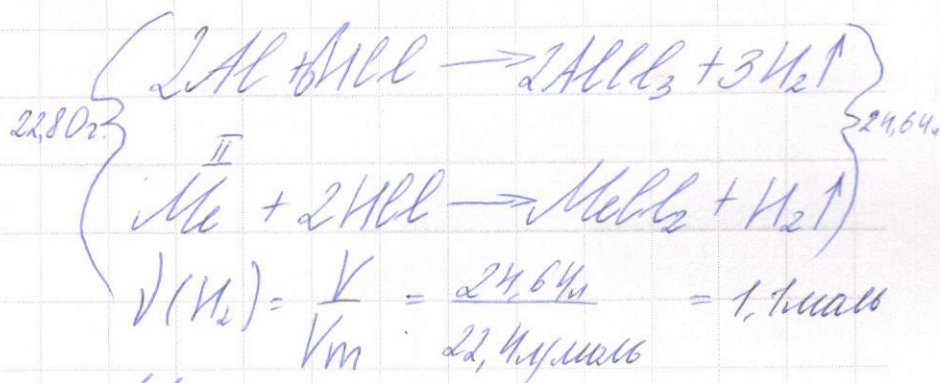 2Al + 6HCl → 2AlCl₃ + 3H₂↑
22,80г. 24,64л
II
Me + 2HCl → MeCl₂ + H₂↑
ν(H₂) = V/Vm = 24,64л/22,4л/моль = 1,1моль